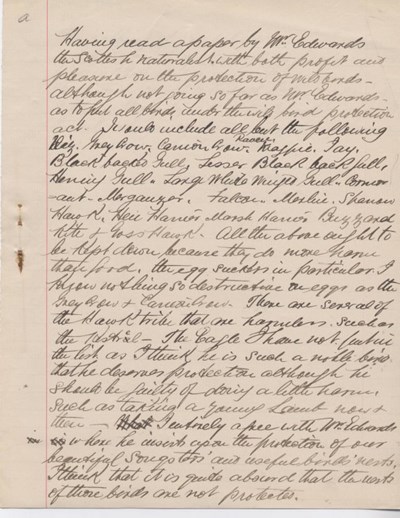 a
Having read a paper by Mr. Edwards
the Scottish Naturalist with both profit and
pleasure on the protection of wild birds -
although not going so far as Mr. Edwards -
as to put all birds under the wild bird protection
act. I would include all but the following
Viz. Grey Crow. Carrion Crow. Raven. Magpie. Jay.
Black backed Gull, Lesser Black back Gull,
Herring Gull. Large White Winged Gull. Cormor
-ant. Merganzer. Falcon. Merlin. Sparrow
Hawk. Hen Harrier Marsh Harrier Buzzard
Kite & Goss Hawk. All the above ought to
be kept down because they do more harm
than good, the egg suckers in particular. I
know nothing so destructive on eggs as the
Grey Crow & Carrion Crow. There are several of
the Hawk tribe that are harmless. such as
the Kestrel - The Eagle I have not put in
the list as I think he is such a noble bird
that he deserves protection although he
should be guilty of doing a little harm.
Such as taking a young Lamb now &
then - I entirely agree with Mr. Edwards
where he insists upon the protection of our
beautiful Songsters and useful birds nests.
I think that it is quite absurd that the nests
of those birds are not protected.